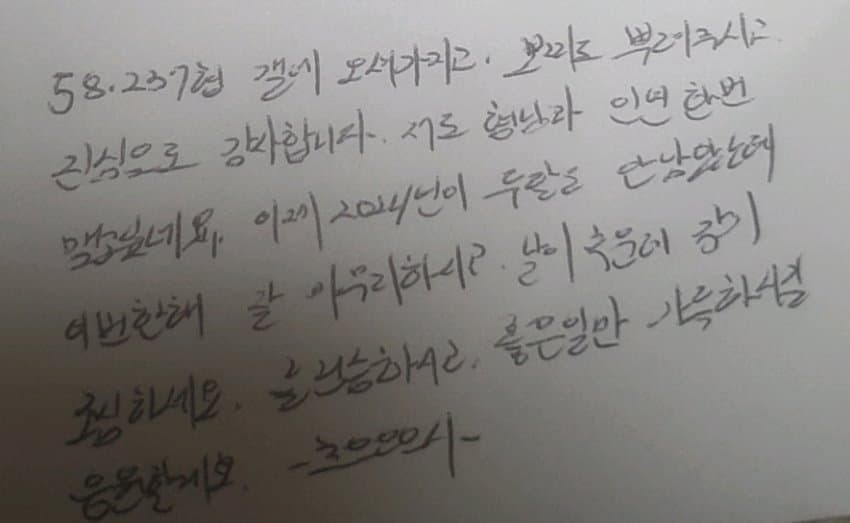 58.237형 갤에 오셔가지고. 뽀찌도 뿌려주시고
진심으로 감사합니다. 저도 형님과 인연 한번
맺어보네요. 이제 2024년이 두달도 안남았는데
이번한해 잘 마무리하시고. 날이 추운데 감기
조심하세요. 늘 건승하시고. 좋은일만 가득하시길
응원할게요.